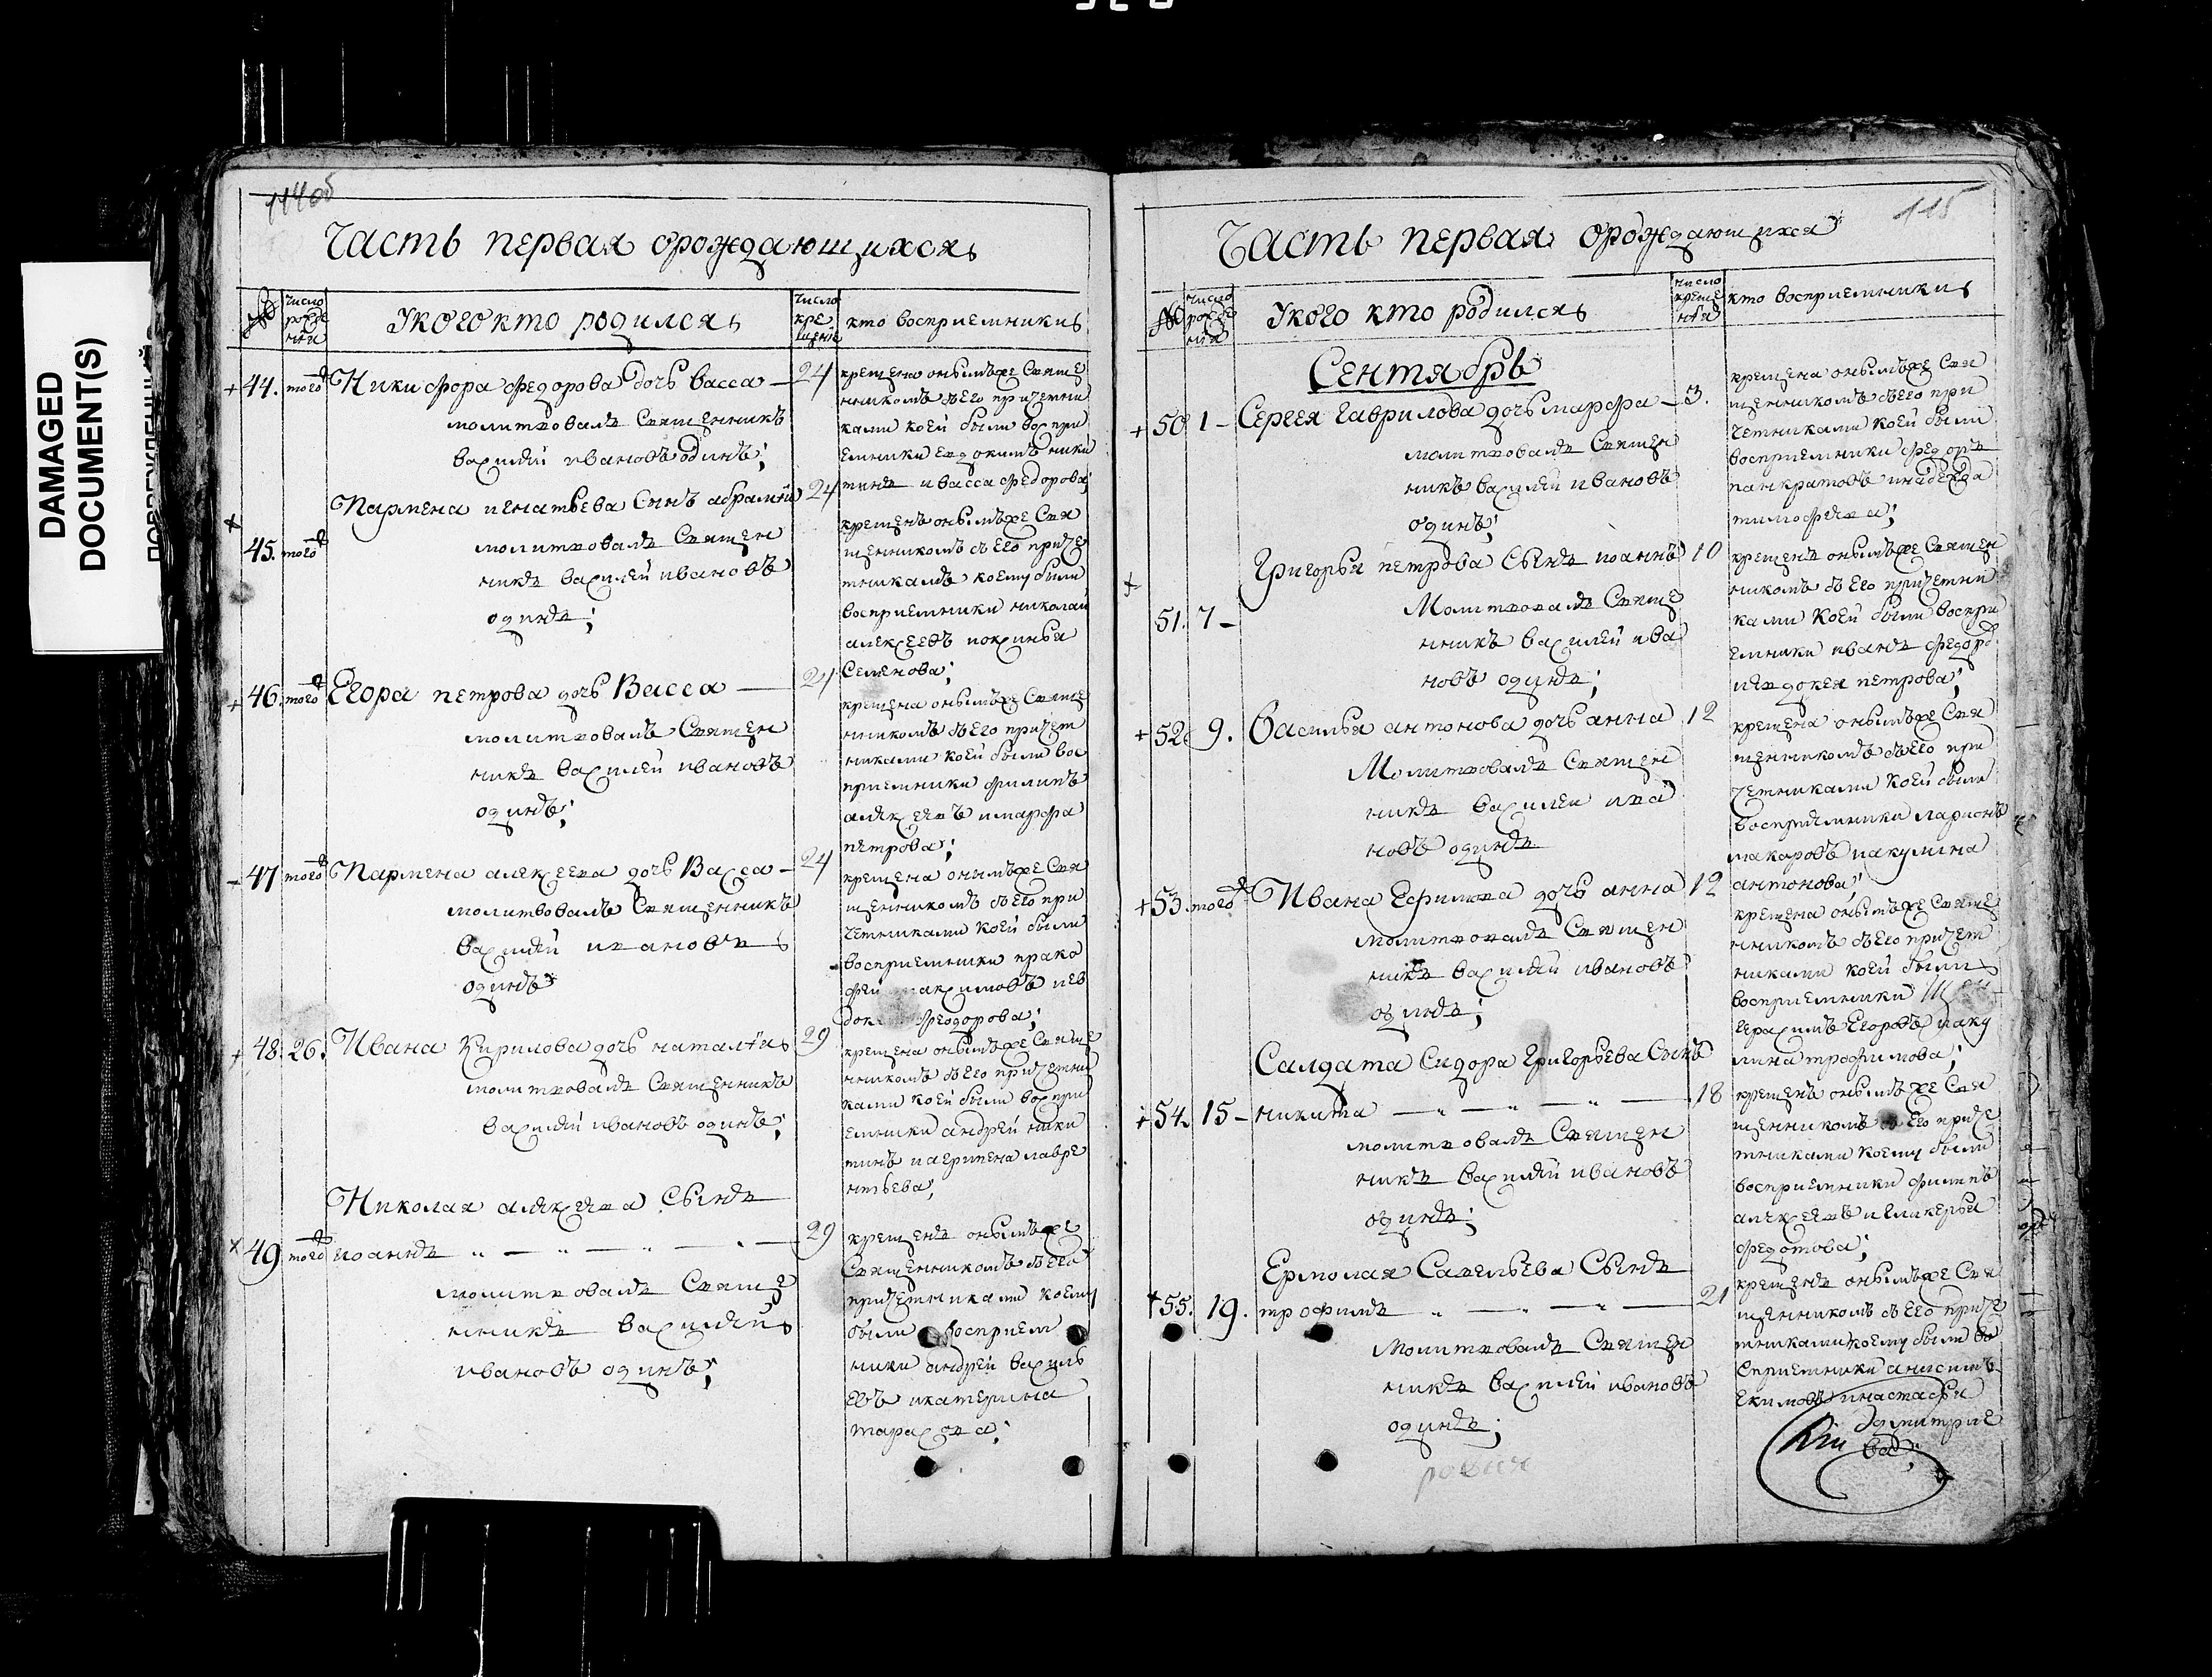 DAMAGED
DOCUMENT(S)
114об
Часть первая орождающихся
№
число рожде нія
Укого кто родился
число кре щенія
кто восприемники
44. того
Никифора федорова дочь васса — 24
молитвовалъ Священникъ
василий ивановъ одинъ;
крещена онымъже Свяще
нникомъ съ Его причетни
ками коей были воспри
емники Евдокимъ ники
тинъ и васса федорова;
45. того
Пармена игнатьева Сынъ абрамій 24
молитвовалъ Священ
никъ василей ивановъ
одинъ;
крещенъ онымъже Свя
щенникомъ съ Его приче
тникамъ коему были
восприемники николай
алексеевъ иоксинья
Семенова;
46. того
Егора петрова дочь Васса — 24
молитвовалъ Священ
никъ василей ивановъ
одинъ;
крещена онымъже Свяще
нникомъ съ Его причет
никами коей были вос
приемники филипъ
алексеевъ имарфа
петрова;
47 того
Пармена алексеева дочь Васса — 24
молитвовалъ Священникъ
василий ивановъ
одинъ
крещена онымъже Свя
щенникомъ съ Его при
четниками коей были
восприемники прако
фей максимовъ иев
феодорова;
48. 26.
Ивана Кирилова дочь наталія 29
молитвовалъ Священникъ
василий ивановъ одинъ;
крещена онымъже Свяще
нникомъ съ Его причетни
ками коей были воспри
емники андрей ники
тинъ иагрипена лавре
нтьева;
Николая алексеева Сынъ
49 того иоаннъ — 29
молитвовалъ Свяще
нникъ василий
ивановъ одинъ;
крещенъ онымъже
Священникомъ съ Его
причетниками коему
были восприем
ники андрей василь
евъ икатерина
тарасова;
115
Часть первая орождающихся
№
число рожде нія
Укого кто родился
число креще нія
кто восприемники
Сентябрь
50 1 — Сергея Гаврилова дочь марфа — 3.
молитвовалъ Священ
никъ василий ивановъ
одинъ;
крещена онымъже Свя
щенникомъ съ Его при
четниками коей были
восприемники федоръ
панкратовъ инадежда
тимофеева;
51. 7 —
Григорья петрова Сынъ иоаннъ 10
Молитвовалъ Свяще
нникъ василей ива
новъ одинъ;
крещенъ онымъже Священ
никомъ съ Его причетни
ками Коей были воспри
емники иванъ федоро
иевдокея петрова;
52 9. Василья антонова дочь анна 12
Молитвовалъ Священ
никъ василеи ива
новъ одинъ
крещена онымъже Свя
щенникомъ съ Его при
четниками коей были
восприемники ларионъ
макаровъ иакулина
антонова;
53 того Ивана Ефимова дочь анна 12
молитвовалъ Священ
никъ василий ивановъ
одинъ;
крещена онымъже Свяще
нникомъ съ Его причет
никами коей были
восприемники
герасимъ Егоровъ иаку
лина трофимова;
Салдата Сидора Григорьева Сынъ
54. 15 — никита — 18
молитвовалъ Священ
никъ василий ивановъ
одинъ;
крещенъ онымъже Свя
щенникомъ съ Его приче
тниками коему были
восприемники филипъ
алексеевъ игликерья
федотова;
Ермолая Савельева Сынъ
55. 19. трофимъ — 21
Молитвовалъ Священ
никъ василей ивановъ
одинъ;
крещенъ онымъже Свя
щенникомъ съ Его приче
тниками коему были во
сприемники анисимъ
Екимовъ инастасья
дмитрие
ва;